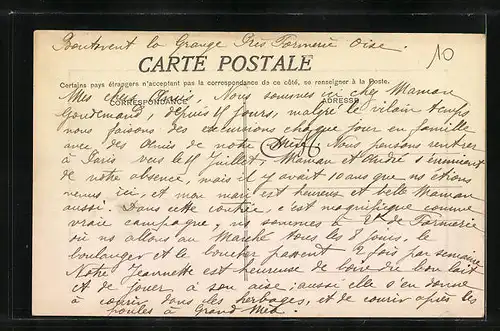 Boutavent la Grange Près Formerie Oise.
10
CARTE POSTALE
Certains pays étrangers n'acceptant pas la correspondance de ce côté, se renseigner à la Poste.
CORRESPONDANCE
ADRESSE
Mes chers Amis, Nous sommes ici chez Maman
Goudemand, depuis 15 jours, malgré le vilain temps
nous faisons des excursions chaque jour en famille
avec des Amis de notre. Nous pensons rentrer
à Paris vers le 15 Juillet, Maman et André s'ennuient
de notre absence, mais il y avait 10 ans que ns étions
venus ici et mon mari est heureux et belle Maman
aussi. Dans cette contrée, c'est magnifique comme
vraie campagne, ns sommes à de Formerie
où ns allons au Marché tous les 8 jours, le
boulanger et le boucher passent 2 fois par semaine
Notre Jeannette est heureuse de boire du bon lait
et de jouer à son aise; aussi elle s'en donne
à courir dans les herbages, et de courir après les
poules à Grand'Mère.